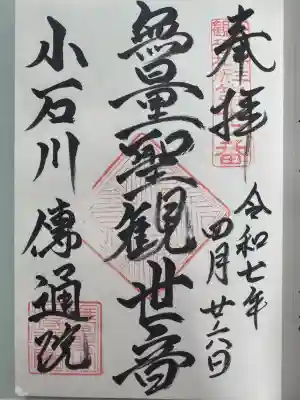 奉拝
令和七年
四月廿六日
無量聖観世音
小石川傳通院